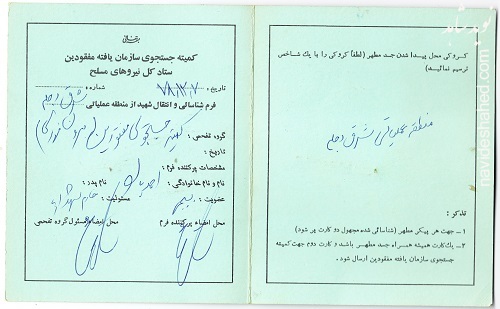 کروکی محل پیدا شدن جسد مطهر (لطفاً کروکی را با یک شاخص
ترسیم نمائید)
منطقه عملیاتی شرق دجله
تذکر :
۱ – جهت هر پیکر مطهر (شناسائی شده مجهول دو کارت پر شود)
۲ – یک کارت همیشه همراه جسد مطهر باشد و کارت دوم جهت کمیته
جستجوی سازمان یافته مفقودین ارسال شود .
کمیته جستجوی سازمان یافته مفقودین
ستاد کل نیروهای مسلح
تاریخ : ۷۸/۱۲/۷ شماره :
فرم شناسائی و انتقال شهید از منطقه عملیاتی شرق دجله
گروه تفحص : کمیته جستجوی مفقودین
تاریخ :
مشخصات پرکننده فرم :
نام و نام خانوادگی : نام پدر :
عضویت : مسئولیت :
محل امضاء پرکننده فرم محل امضاء مسئول گروه تفحص
navideshahed.com